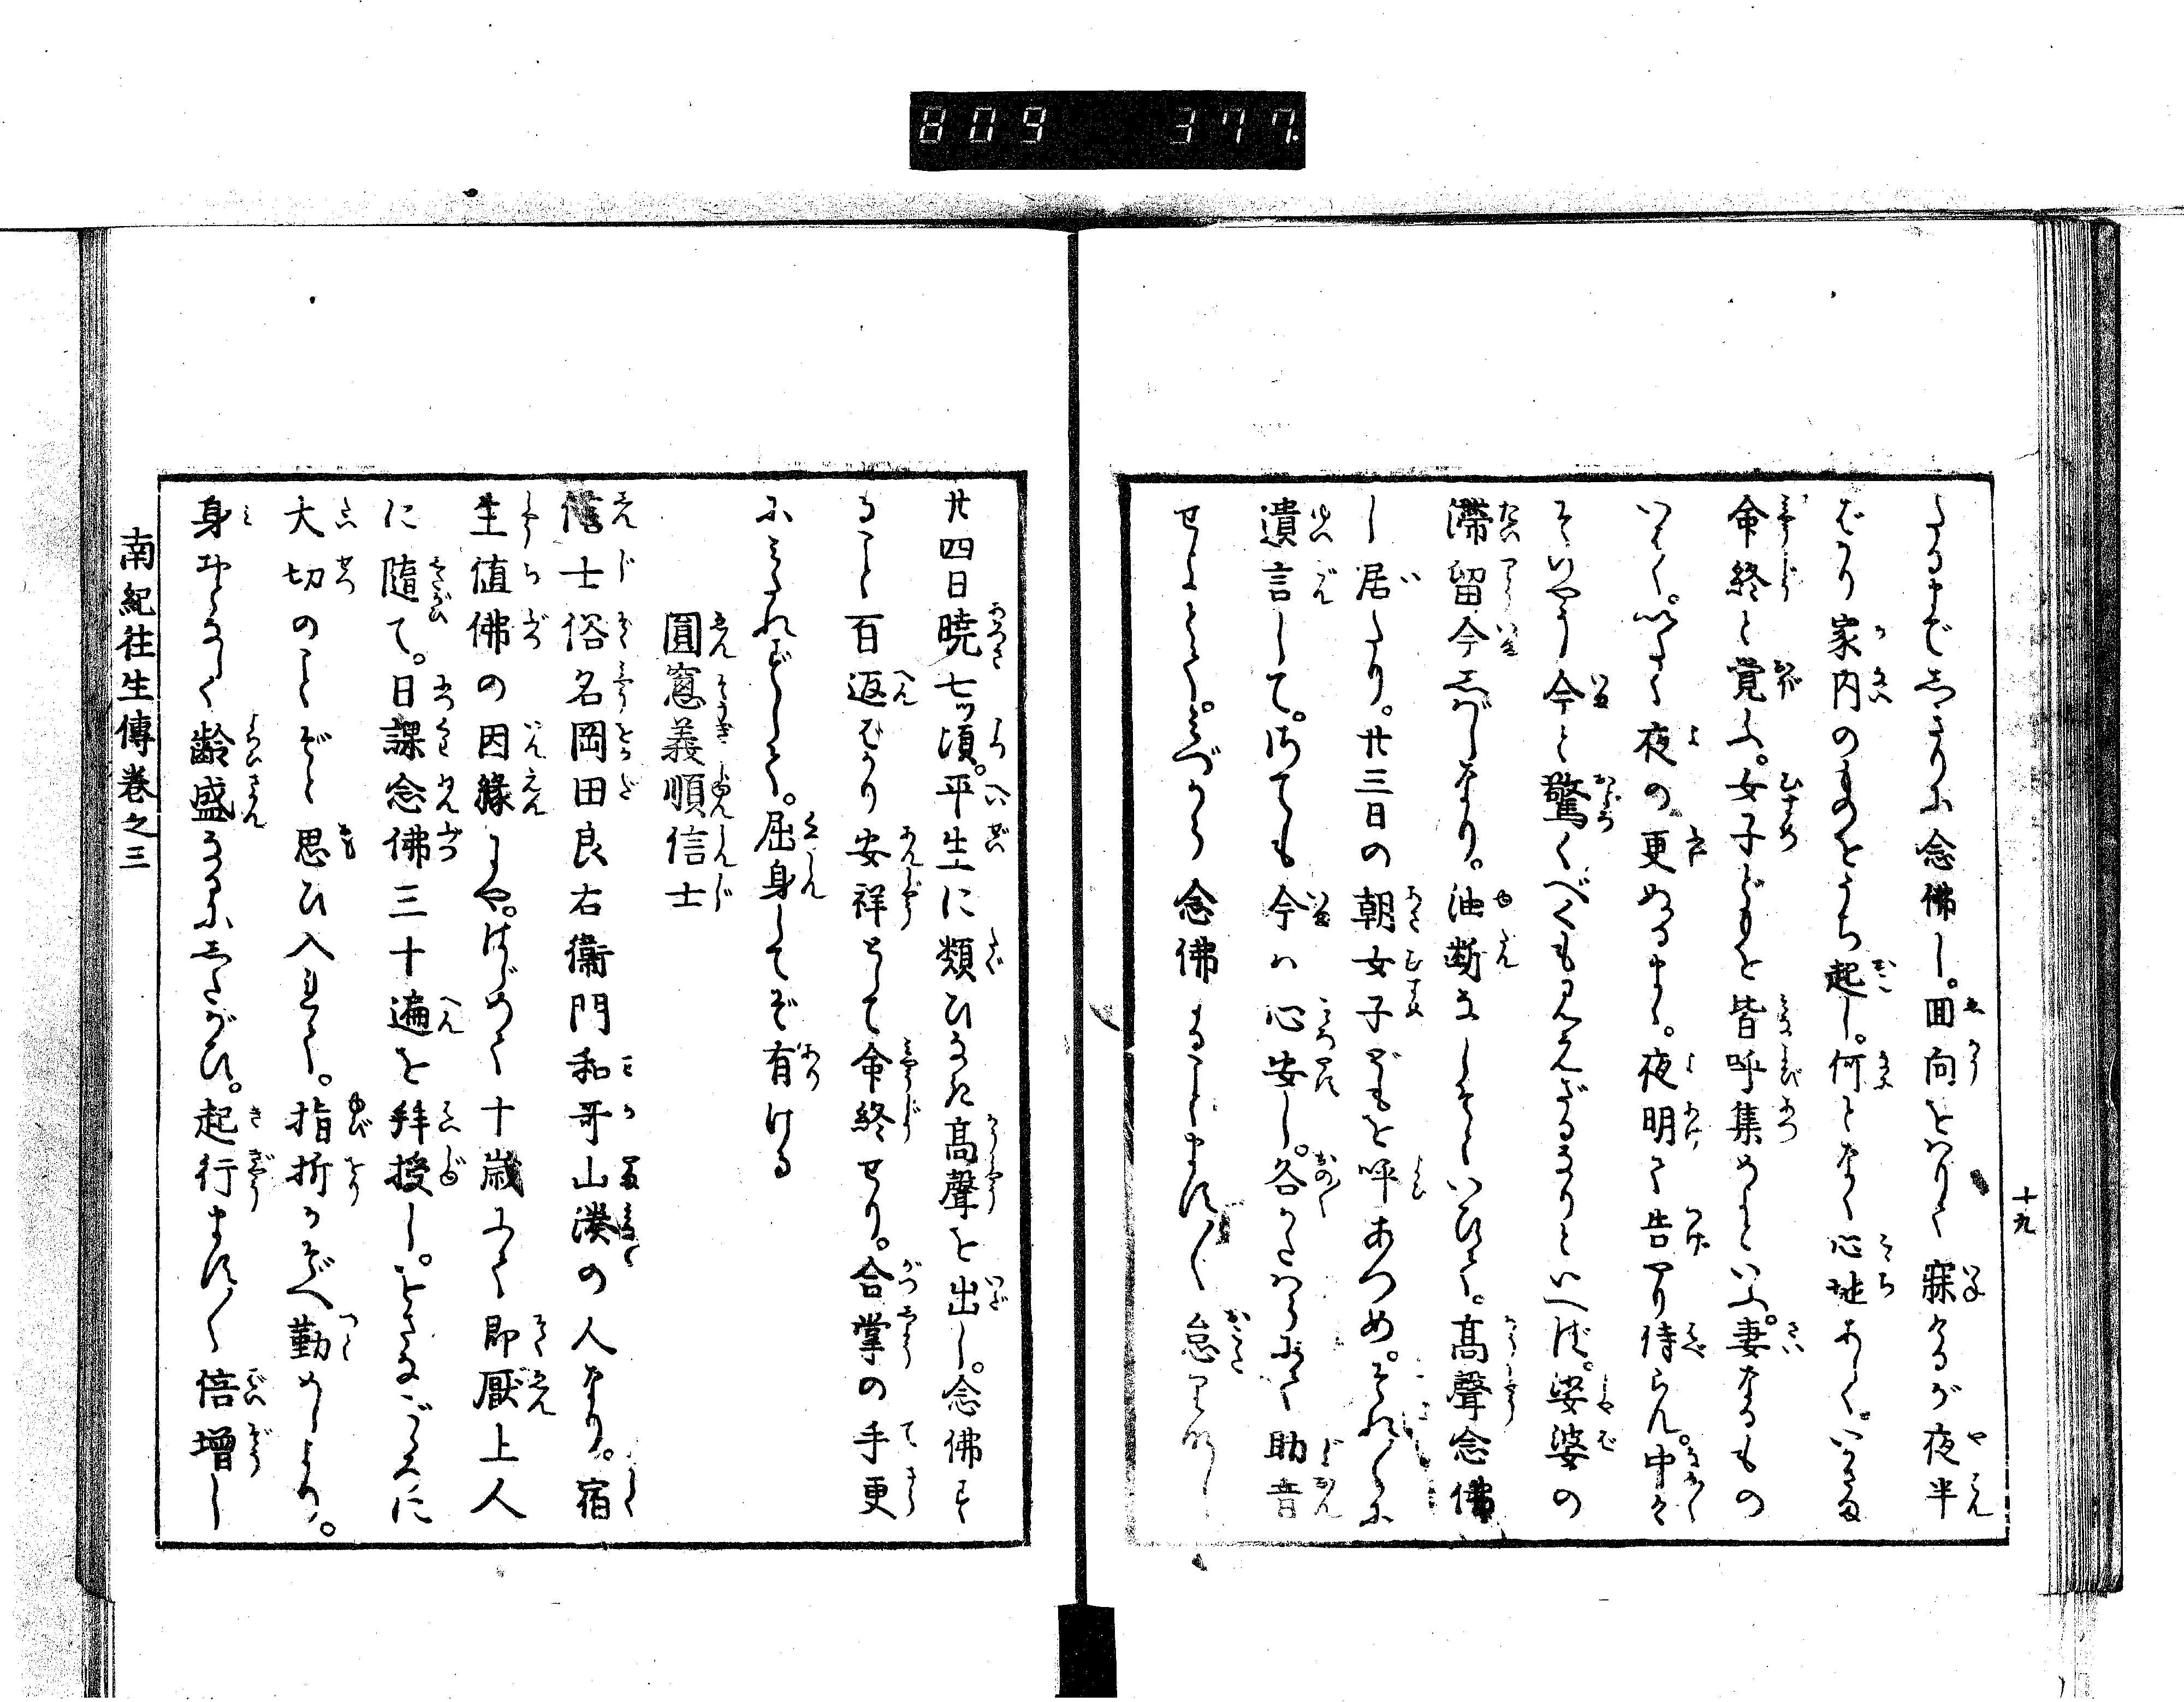 809 377
十九
たるまでしきりに念佛し。回向をはりて寐けるが夜半
ばかり家内のものをうち起し。何となく心地あしく。いかさま
命終と覚ふ。女子どもを皆呼集めよといふ。妻なるもの
いはく。いまだ夜の更ぬるまゝ。夜明て告やり侍らん。中々
そのやう今と驚くべくも見えざるなりといへば。娑婆の
滞留今しばしなり。油断なしそといひて。高聲念佛
し居たり。廿三日の朝女子どもを呼あつめ。それ〳〵に
遺言して。さても今は心安し。各かはる〴〵助音
せよとて。みづから念佛することます〳〵怠りなし
廿四日暁七ッ頃。平生に類ひなき高聲を出し。念佛す
ること百返ばかり安祥として命終せり。合掌の手更
にみだれずして。屈身してぞ有ける
圓窓義順信士
信士俗名岡田良右衛門和哥山湊の人なり。宿
生値佛の因縁にや。はじめて十歳にて即厭上人
に隨て。日課念佛三十遍を拜授し。をさなごゝろに
大切のことぞと思ひ入れて。指折かぞへ勤めしより。
身おとなしく齢盛なるにしたがひ。起行ます〳〵倍増し
南紀往生傳巻之三